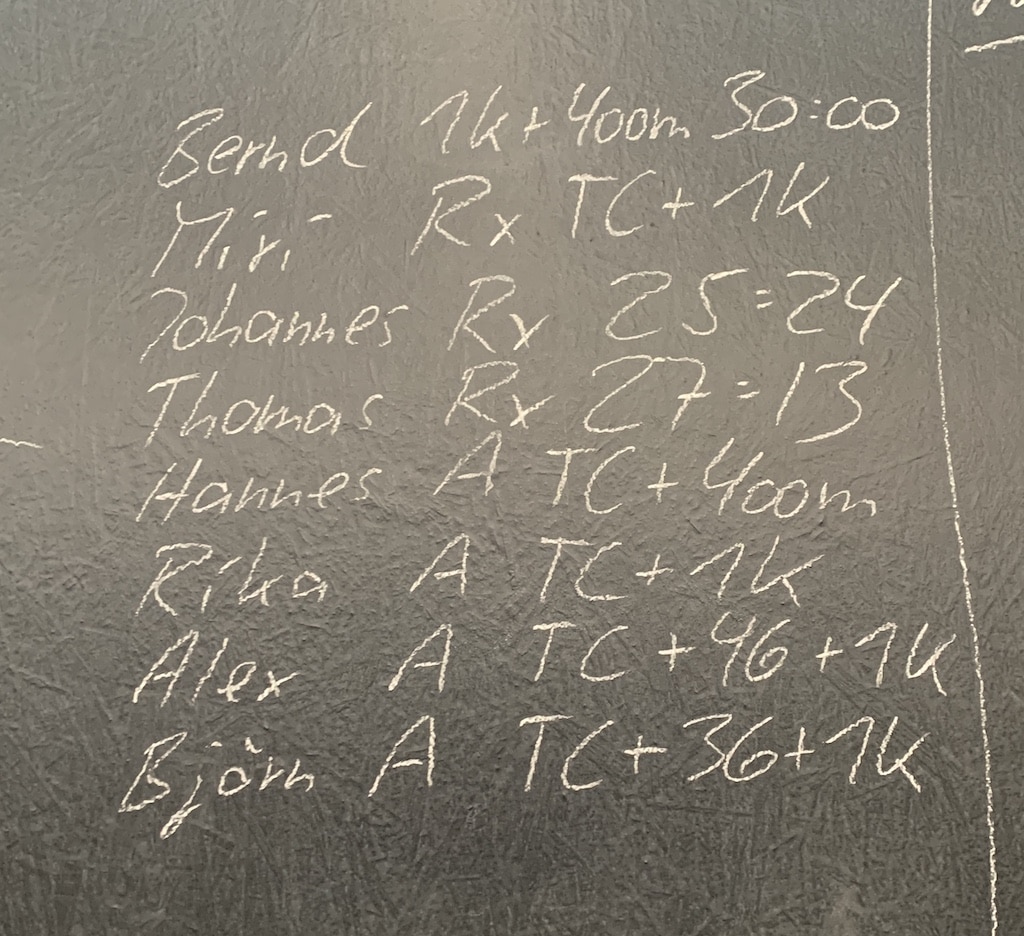 Bernd 1k+400m 30:00
Miri Rx TC+1k
Johannes Rx 25:24
Thomas Rx 27:13
Hannes A TC+400m
Rika A TC+1k
Alex A TC+46+1k
Björn A TC+36+1k